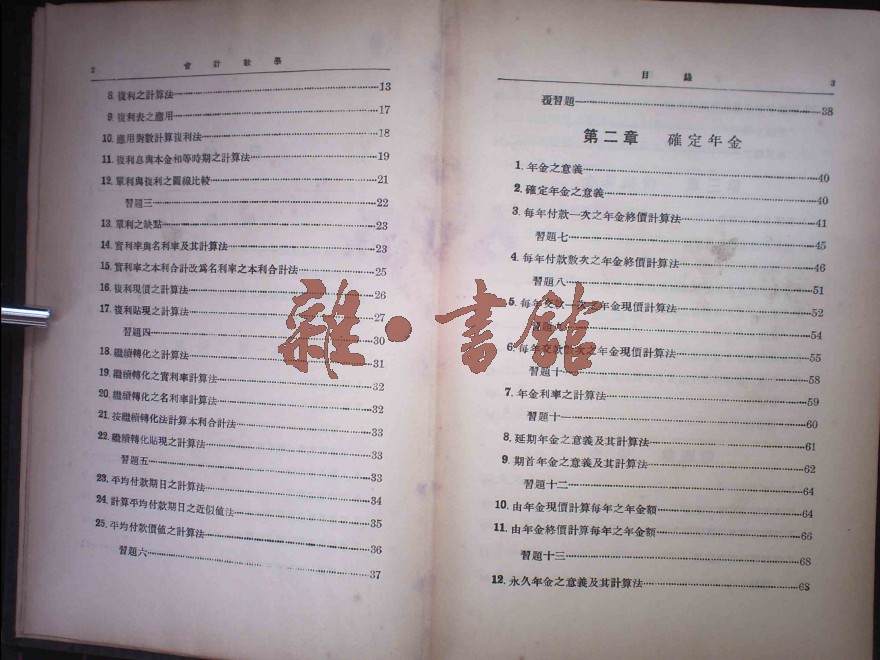 2 會計數學
8. 復利之計算法 13
9. 復利表之應用 17
10. 應用對數計算復利法 18
11. 復利息與本金相等時期之計算法 19
12. 單利與復利之圖線比較 21
習題三 22
13. 單利之缺點 23
14. 實利率與名利率及其計算法 23
15. 實利率之本利合計改爲名利率之本利合計法 25
16. 復利現價之計算法 26
17. 復利貼現之計算法 27
習題四 30
18. 繼續轉化之計算法 31
19. 繼續轉化之實利率計算法 32
20. 繼續轉化之名利率計算法 32
21. 按繼續轉化法計算本利合計法 33
22. 繼續轉化貼現之計算法 33
習題五 33
23. 平均付款期日之計算法 34
24. 計算平均付款期日之近似值法 35
25. 平均付款價值之計算法 36
習題六 37
目錄 3
覆習題 38
第二章 確定年金
1. 年金之意義 40
2. 確定年金之意義 40
3. 每年付款一次之年金終價計算法 41
習題七 45
4. 每年付款數次之年金終價計算法 46
習題八 51
5. 每年交款一次之年金現價計算法 52
習題九 54
6. 每年交款數次之年金現價計算法 55
習題十 58
7. 年金利率之計算法 59
習題十一 60
8. 延期年金之意義及其計算法 61
9. 期首年金之意義及其計算法 62
習題十二 64
10. 由年金現價計算每年之年金額 64
11. 由年金終價計算每年之年金額 66
習題十三 68
12. 永久年金之意義及其計算法 68
雜·書館